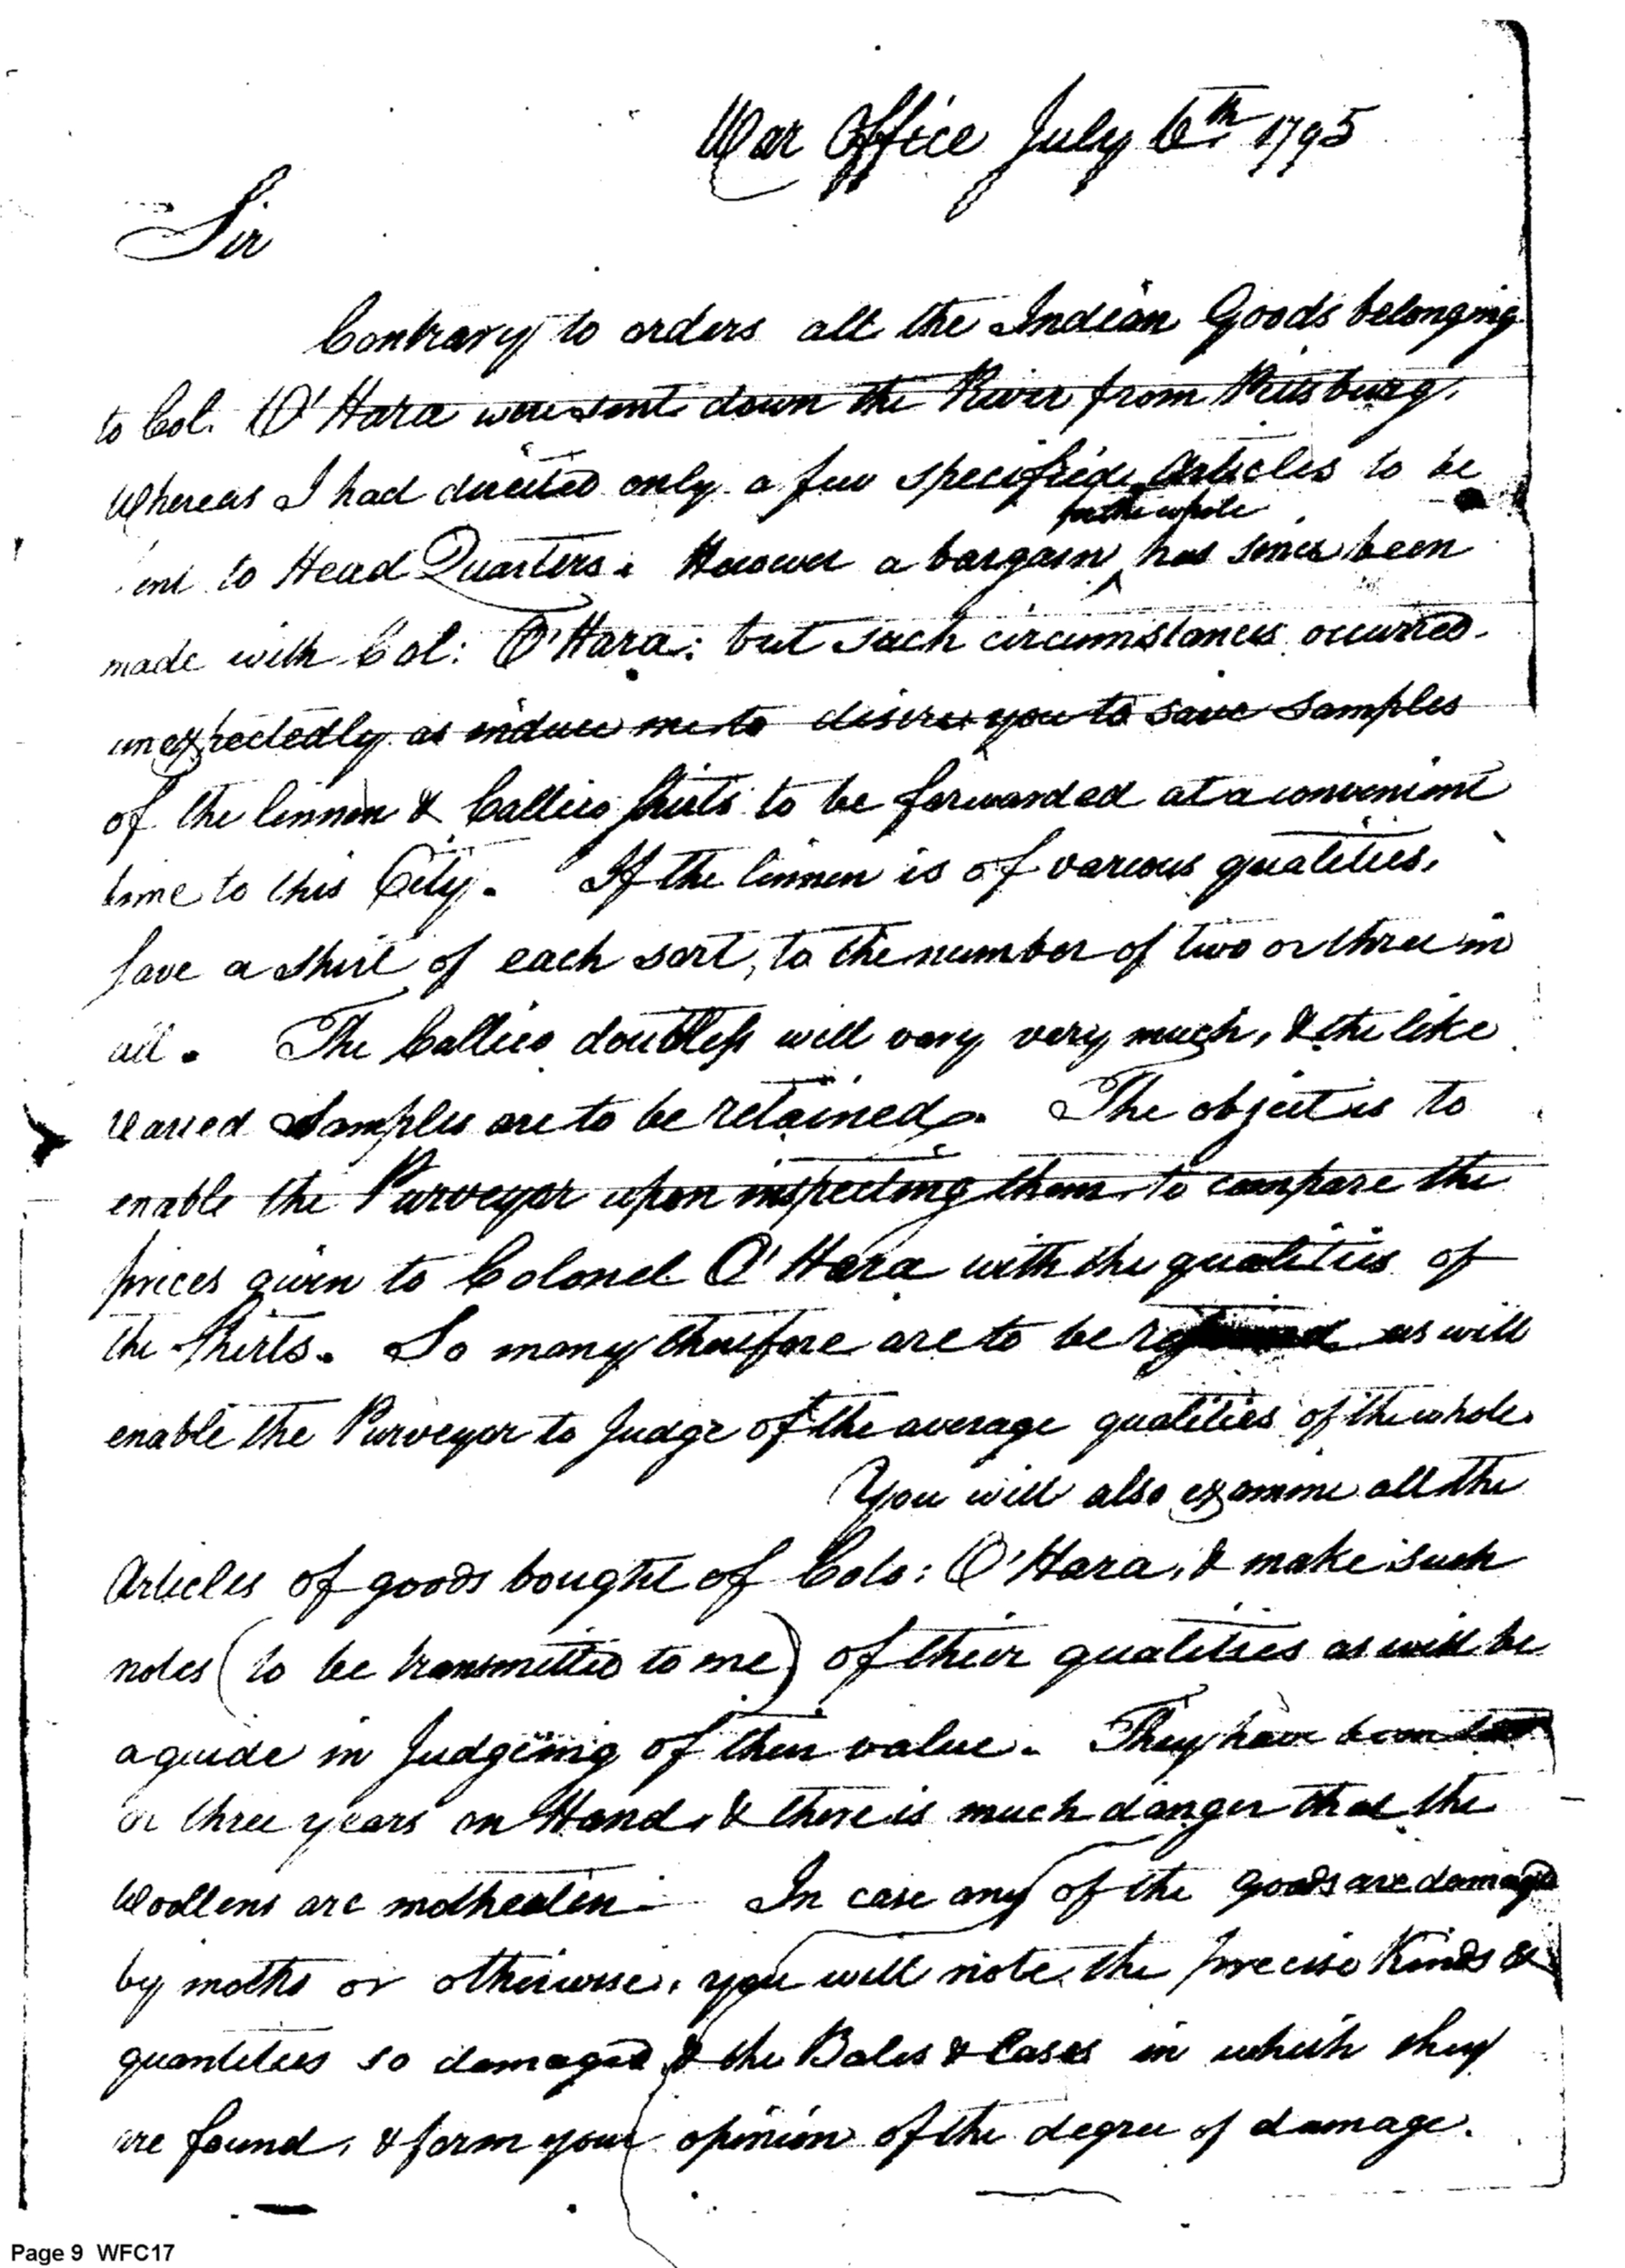 War Office July 6th 1795
Sir
Contrary to orders all the Indian Goods belonging
to Col. O'Hara were sent down the River from Pittsburg,
Whereas I had directed only a few specified Articles to be
ent to Head Quarters. However a bargain for the whole has since been
made with Col: O'Hara: but such circumstances occurred
unexpectedly as induce me to desire you to save samples
of the linnen & Callico shirts to be forwarded at a convenient
time to this City. If the linnen is of various qualities,
save a shirt of each sort, to the number of two or three in
all. The Callico doubtless will vary very much, & the like
varied samples are to be retained. The object is to
enable the Purveyor upon inspecting them, to compare the
prices given to Colonel O'Hara with the qualities of
the shirts. So many therefore are to be as will
enable the Purveyor to Judge of the average qualities of the whole.
You will also examine all the
Articles of goods bought of Colo: O'Hara, & make such
notes (to be transmitted to me) of their qualities as will be
a guide in Judgeing of their value. They have been
or three years on Hand, & there is much danger that the
Woollens are motheaten. In case any of the goods are damaged
by moths or otherwise, you will note the precise Kinds &
quantities so damaged & the Bales & Cases in which they
are found, & form your opinion of the degree of damage.
Page 9 WFC17